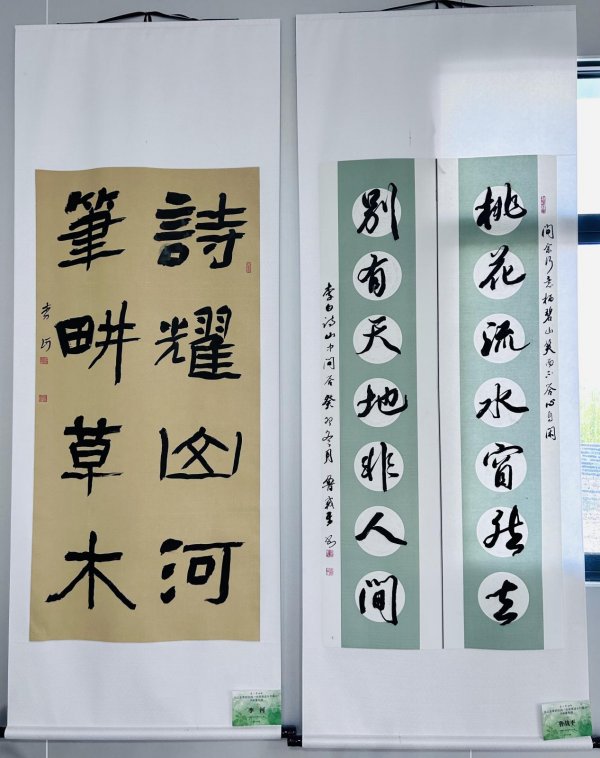 詩耀山河
筆畊草木
李河
李 河
問余何意栖碧山笑而不答心自閑
桃花流水窅然去
別有天地非人間
李白詩山中問答 癸卯冬月